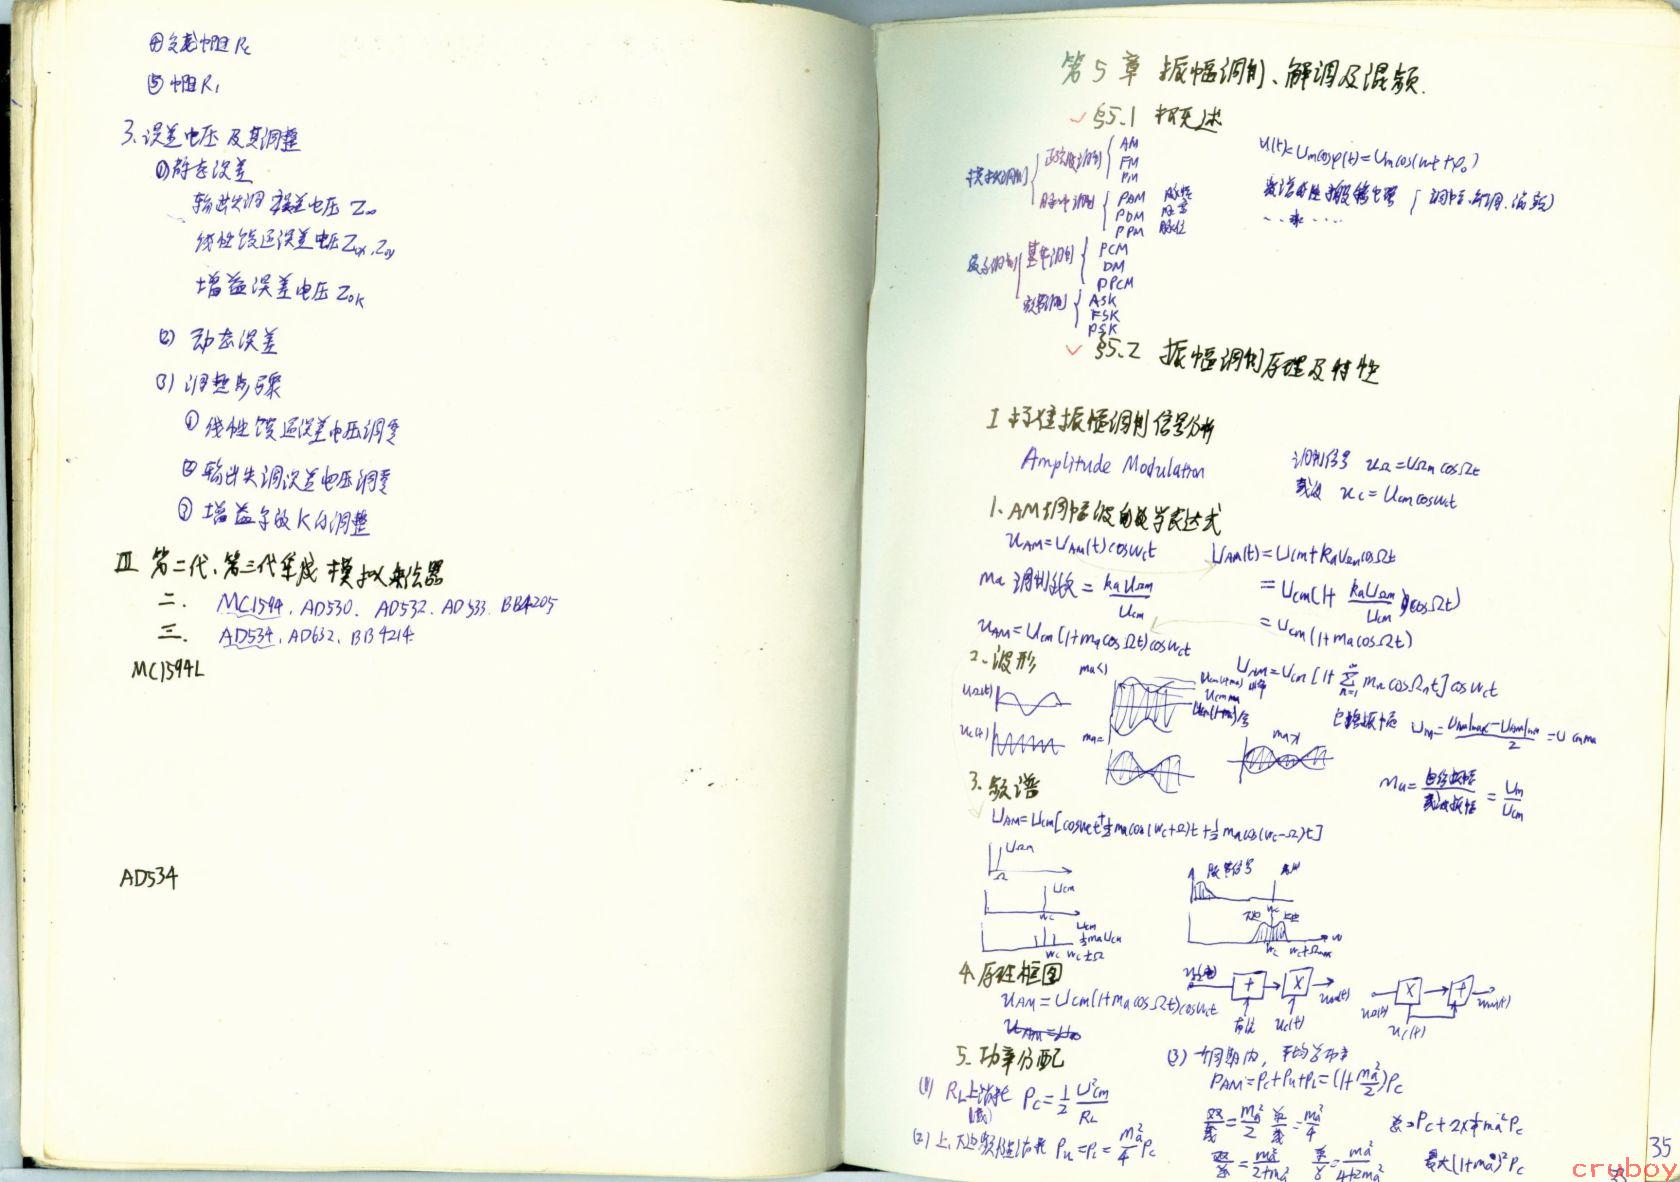 ④负载电阻 Rc
⑤电阻 R₁
3.误差电压及其调整
①静态误差
输出失调误差电压 Zₒₒ
线性馈通误差电压 Zox, Zoy
增益误差电压 ZoK
(2) 动态误差
(3) 调整步骤
① 线性馈通误差电压调整
② 输出失调误差电压调整
③ 增益系数K的调整
III 第二代、第三代集成模拟乘法器
二. MC1594, AD530. AD532. AD533. BB4205
三. AD534, AD632, BB4214
MC1594L
AD534
第5章 振幅调制、解调及混频.
§5.1 概述
模拟调制 正弦波调制 AM FM PM
脉冲调制 PAM 脉幅 PDM 脉宽 PPM 脉位
数字调制 基带调制 PCM DM DPCM
ASK FSK PSK
u(t)=Umcosφ(t)=Umcos(ωt+φ₀)
频谱线性搬移电路 { 调幅、解调、混频)
§5.2 振幅调制原理及特性
I 标准振幅调制信号分析
Amplitude Modulation
调制信号 uΩ=UΩm cosΩt
载波 uc=Ucmcosωct
1. AM调幅波的数学表达式
uAM=UAM(t)cosωct UAM(t)=Ucm+kaUΩmcosΩt
ma 调制系数 = kaUΩm/Ucm =Ucm(1+ kaUΩm/Ucm cosΩt)
=Ucm(1+macosΩt)
uAM=Ucm(1+macosΩt)cosωct
2. 波形 ma<1
UAM=Ucm[1+∑ₙ₌₁ mn cosΩnt]cosωct
uΩ(t)
Ucm(1+ma)
Ucm ma
Ucm(1-ma)
包络振幅 Um=(UAM|max−UAM|min)/2=Ucm ma
uc(t)
ma=1
ma>1
3. 频谱
ma=包络振幅/载波振幅=Um/Ucm
UAM=Ucm[cosωct+½macos(ωc+Ω)t+½macos(ωc-Ω)t]
UΩm
Ω
Ucm
ωc
Ucm
½maUcm
ωc ωc±Ω
ωc
ωc ωc+Ωmax
ω
4. 原理框图
uAM=Ucm(1+macosΩt)cosωct
+ X uAM(t)
直流 uc(t)
X + uAM(t)
uΩ(t) uc(t)
5. 功率分配
(1) RL上消耗 Pc=½ U²cm/RL
(载)
(2) 上、下边频 Pu=Pl=ma²/4 Pc
(3) 一个周期内, 平均总功率
PAM=Pc+Pu+Pl=(1+ma²/2)Pc
双/载=ma²/2 单/载=ma²/4 总=Pc+2×¼ma²Pc
双/总=ma²/(2+ma²) 单/总=ma²/(4+2ma²) 最大(1+ma)²Pc
35
cruboy